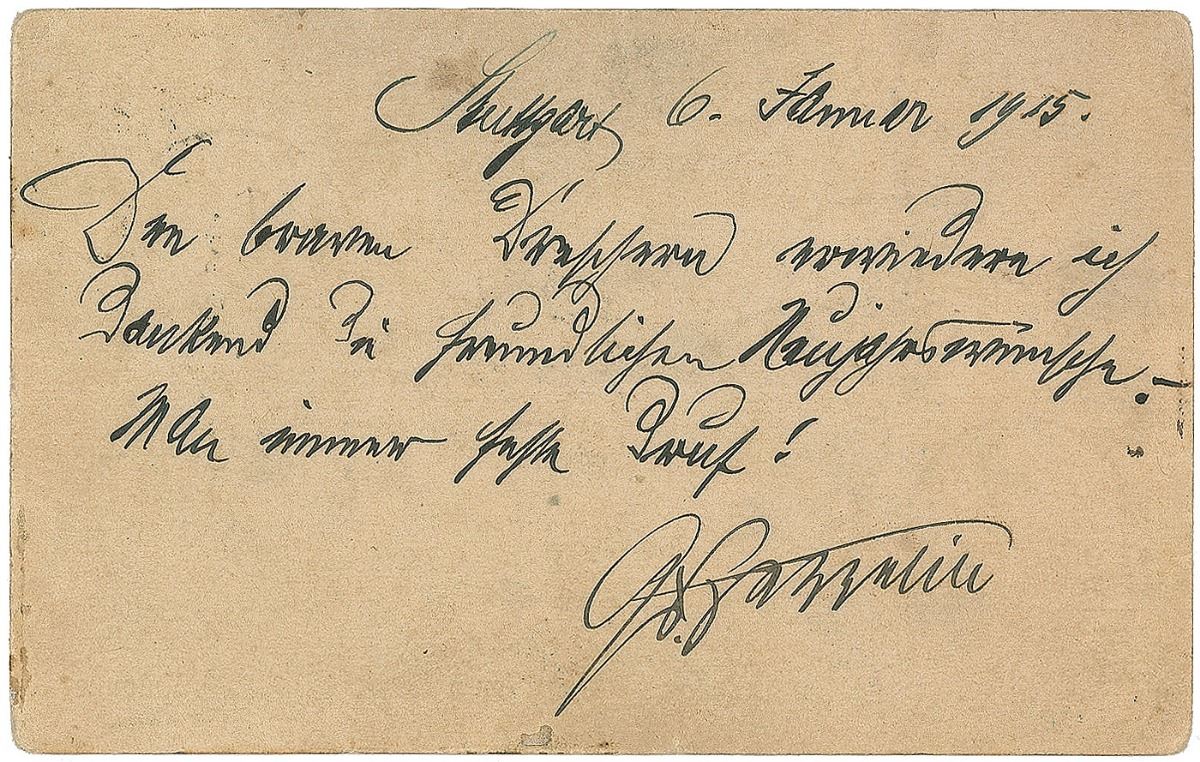 Stuttgart 6. Januar 1915.
Den braven Dreschern erwiedere ich
dankend die freundlichen Neujahrswünsche.
Man immer feste druf!
Gf. Zeppelin